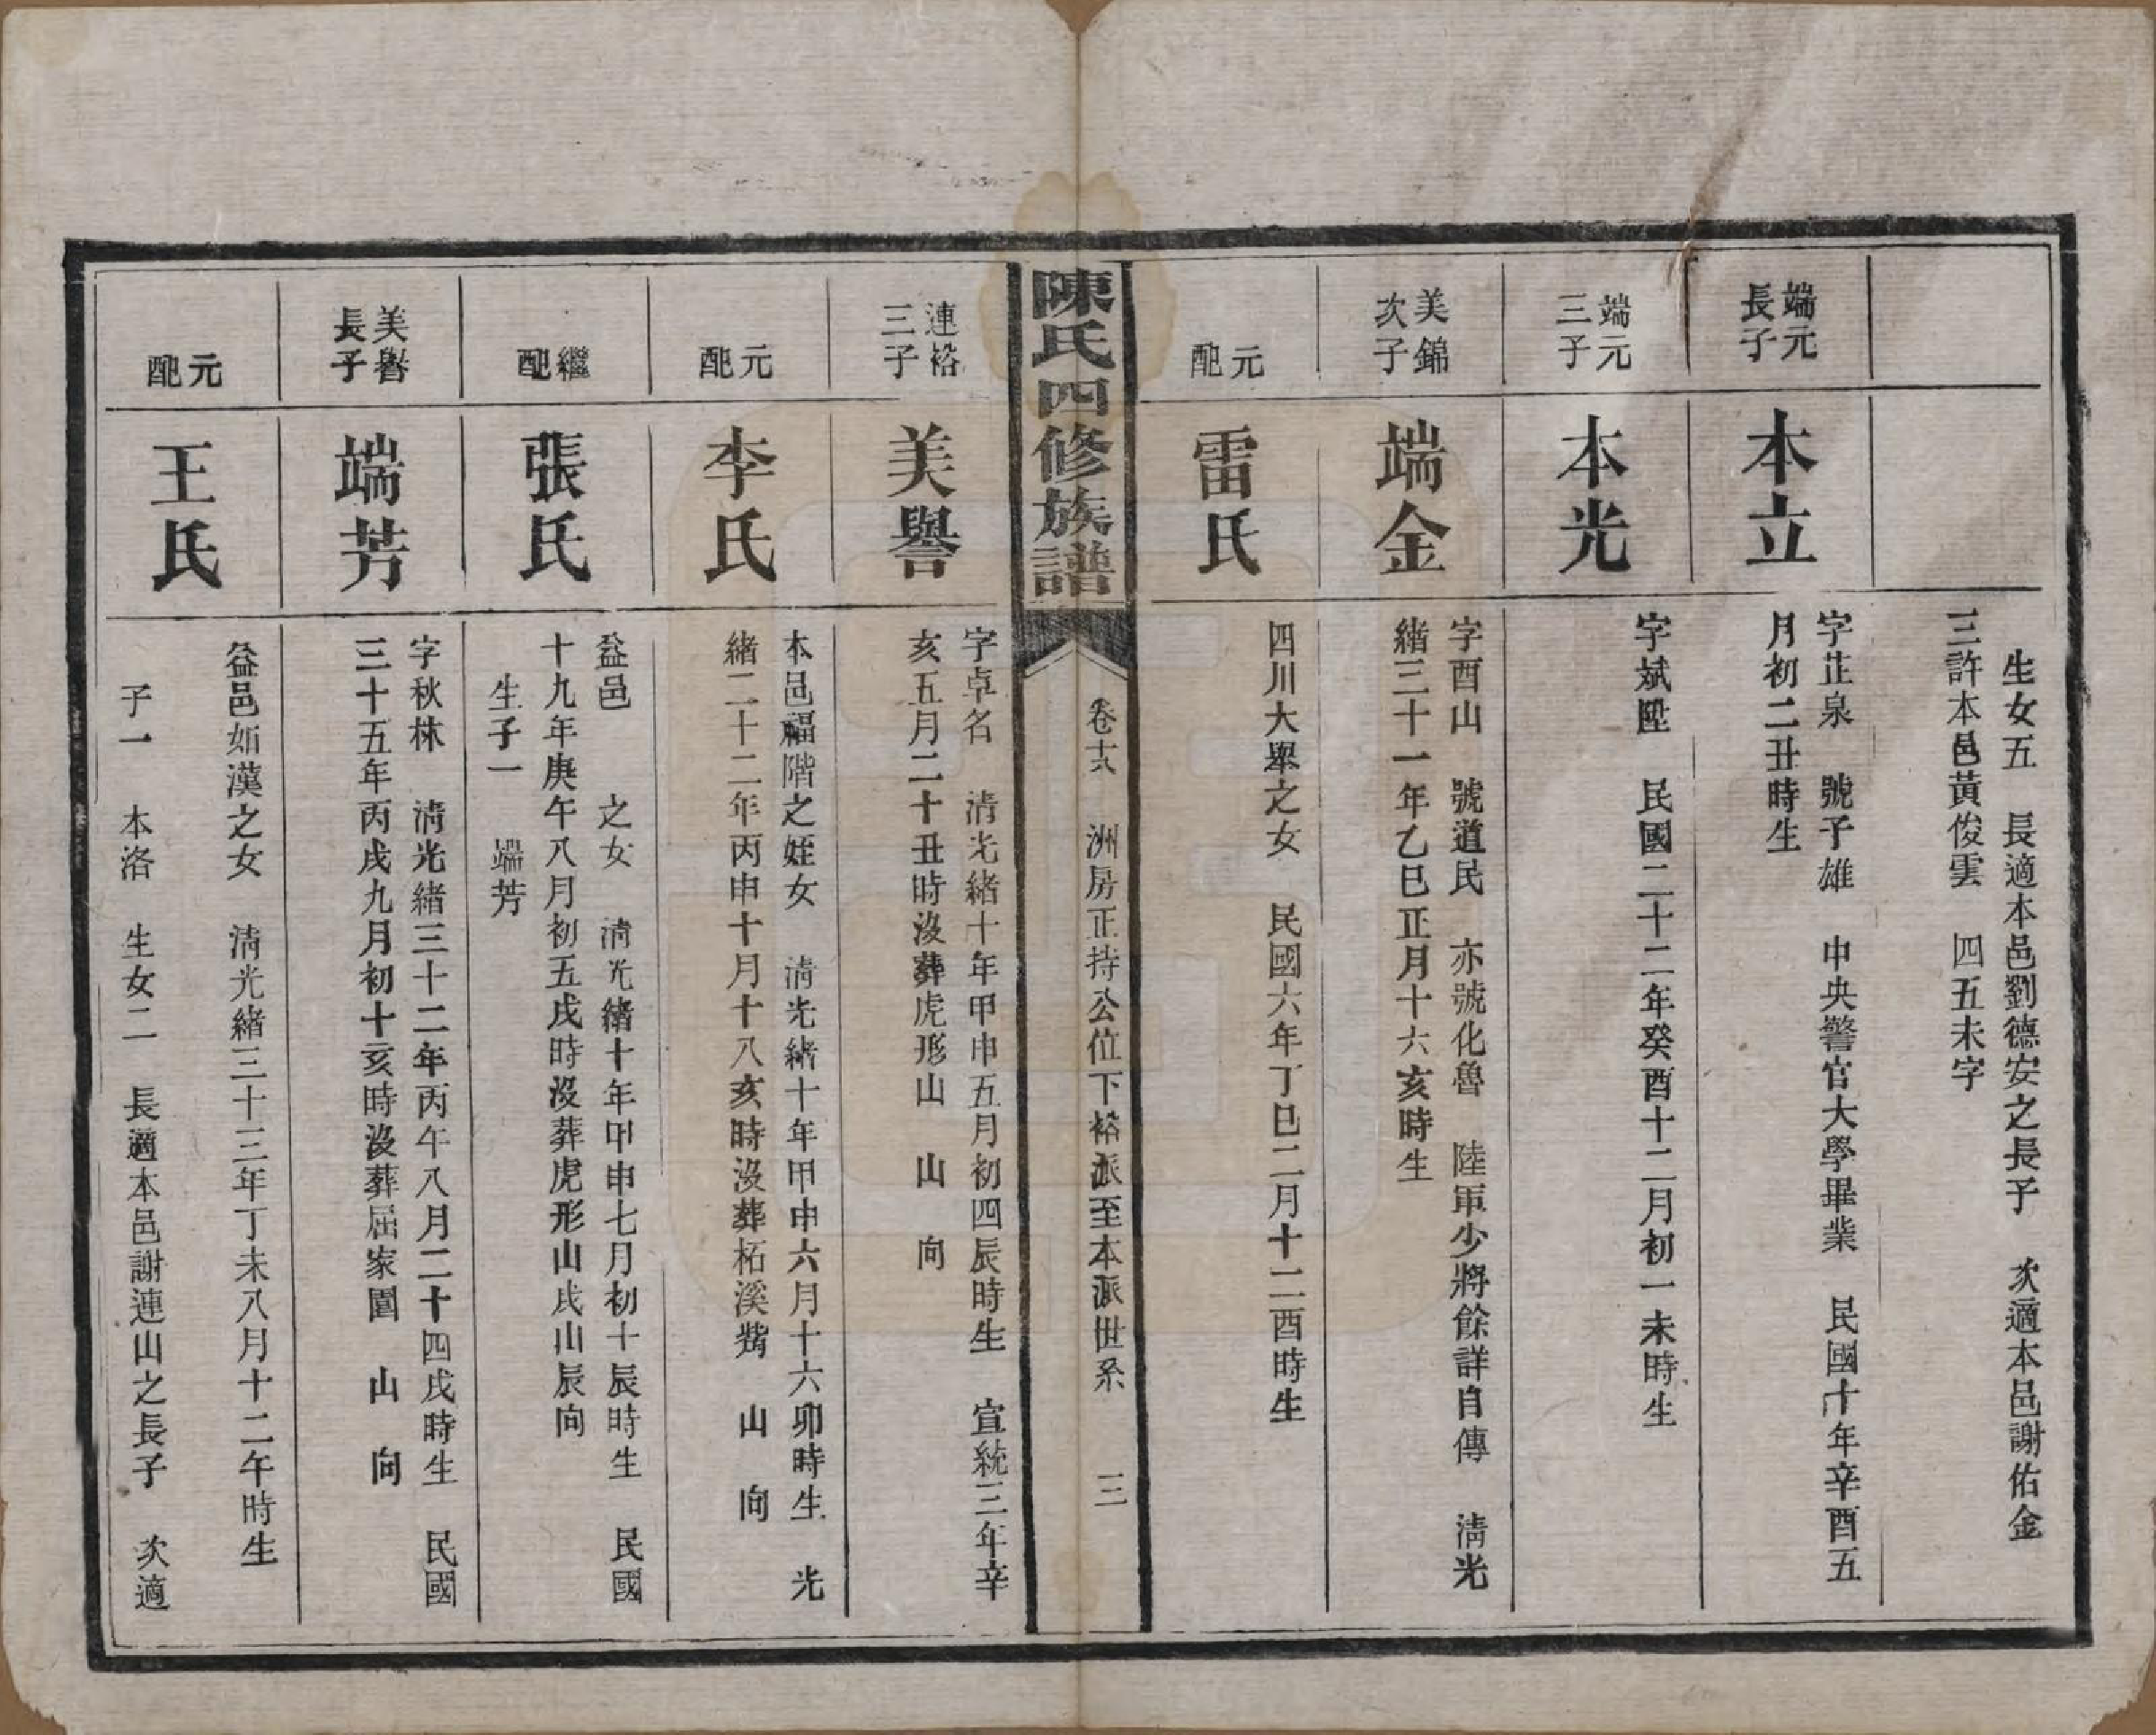 生女五　長適本邑劉德安之長子　次適本邑謝佑金
三許本邑黃俊雲　四五未字
端元
長子
本立
字芷泉　號子雄　中央警官大學畢業　民國十年辛酉五
月初二丑時生
端元
三子
本光
字斌陞　民國二十二年癸酉十二月初一未時生
美錦
次子
端金
字酉山　號道民　亦號化魯　陸軍少將餘詳自傳　清光
緒三十一年乙巳正月十六亥時生
元
配
雷氏
四川大舉之女　民國六年丁巳二月十二酉時生
陳氏四修族譜
卷十六　洲房正持公位下裕派至本派世系　三
連裕
三子
美譽
字卓名　清光緒十年甲申五月初四辰時生　宣統三年辛
亥五月二十丑時沒葬虎形山　山　向
元
配
李氏
本邑福階之姪女　清光緒十年甲申六月十六卯時生　光
緒二十二年丙申十月十八亥時沒葬柘溪　山　向
繼
配
張氏
益邑　之女　清光緒十年甲申七月初十辰時生　民國
十九年庚午八月初五戌時沒葬虎形山戌山辰向
生子一　端芳
美譽
長子
端芳
字秋林　清光緒三十二年丙午八月二十四戌時生　民國
三十五年丙戌九月初十亥時沒葬屈家園　山　向
元
配
王氏
益邑妬漢之女　清光緒三十三年丁未八月十二午時生
子一　本洛　生女二　長適本邑謝連山之長子　次適